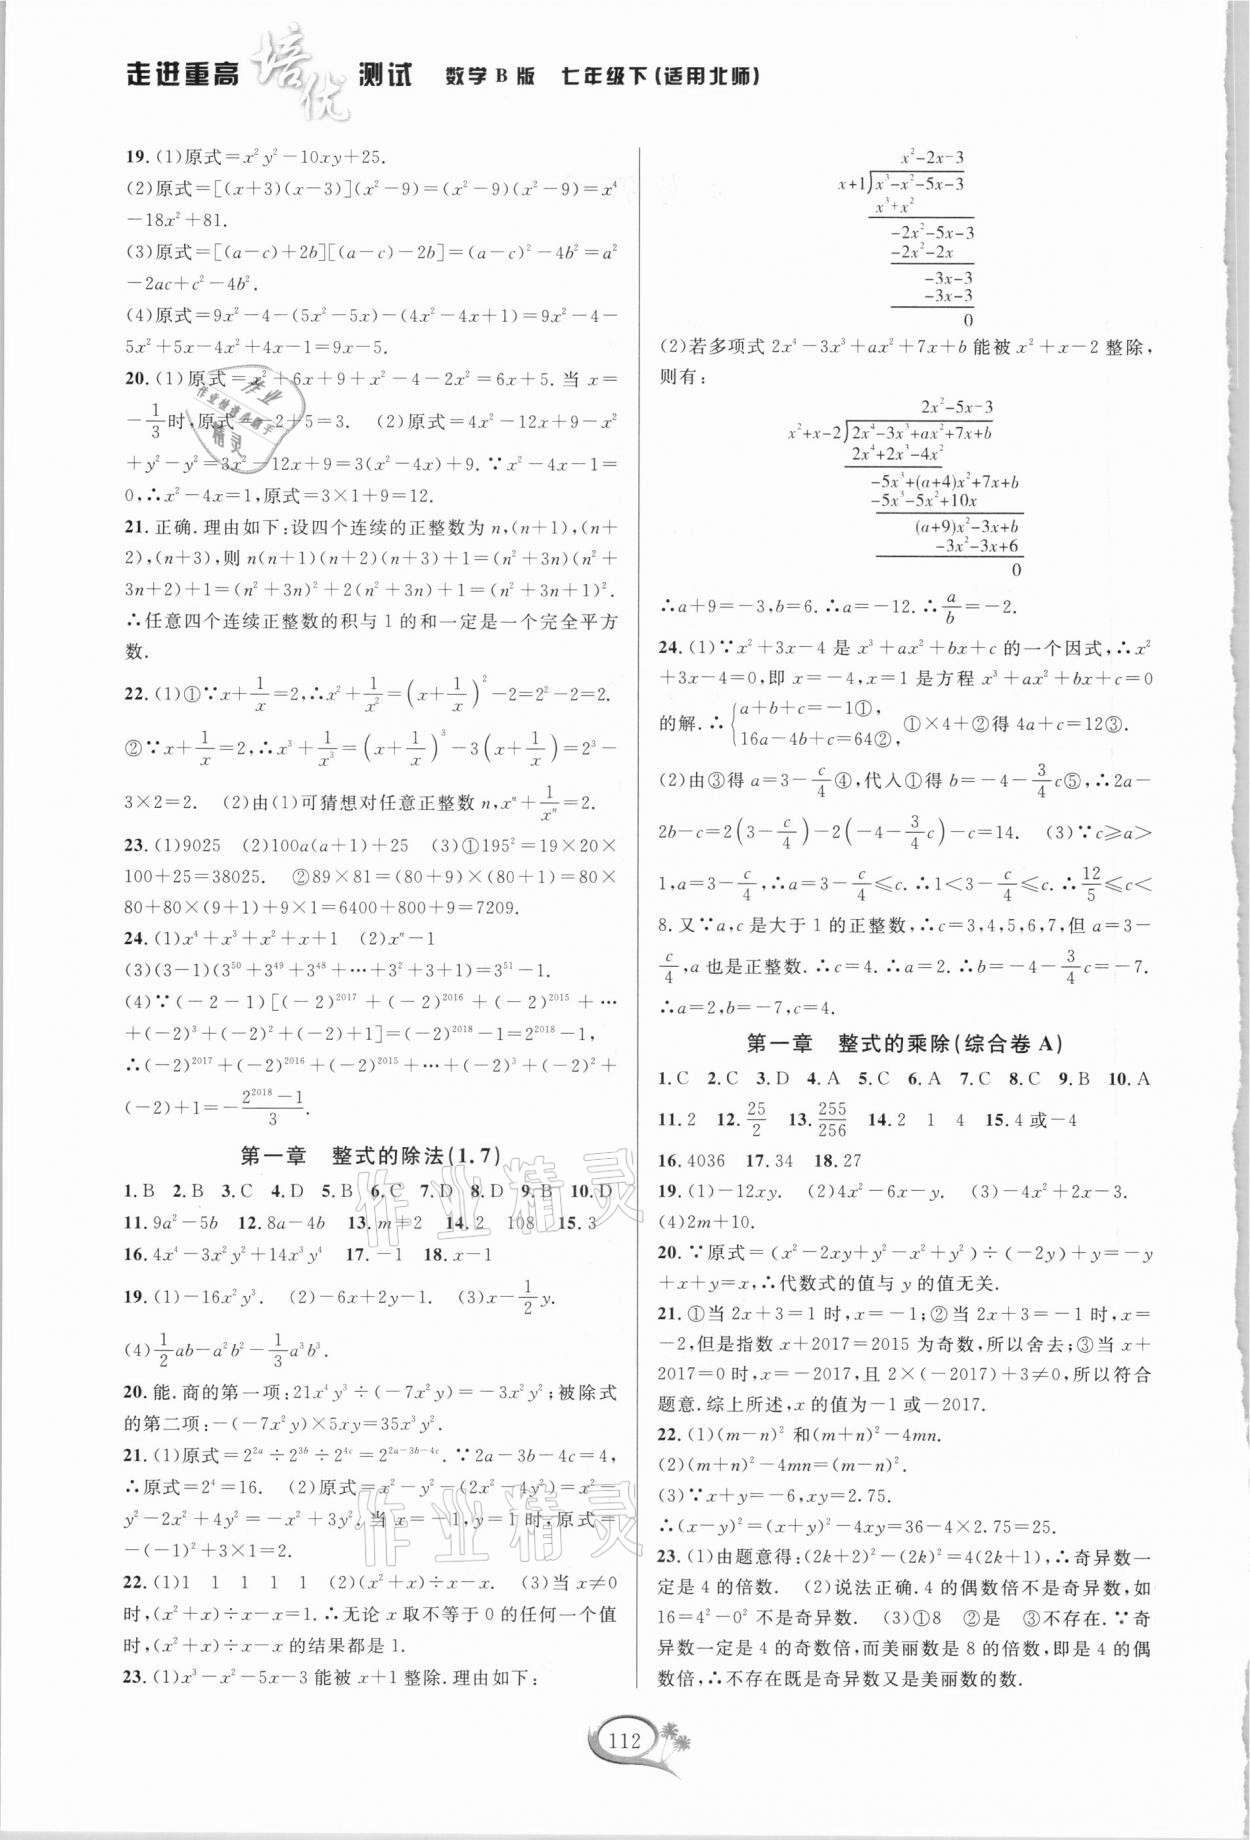 走进重高 培优 测试 数学 B 版 七年级下(适用北师)
19. (1)原式=x²y²-10xy+25.
(2)原式=[(x+3)(x-3)](x²-9)=(x²-9)(x²-9)=x⁴
-18x²+81.
(3)原式=[(a-c)+2b][(a-c)-2b]=(a-c)²-4b²=a²
-2ac+c²-4b².
(4)原式=9x²-4-(5x²-5x)-(4x²-4x+1)=9x²-4-
5x²+5x-4x²+4x-1=9x-5.
20. (1)原式=x²+6x+9+x²-4-2x²=6x+5. 当 x=
-1/3时,原式=-2+5=3. (2)原式=4x²-12x+9-x²
+y²-y²=3x²-12x+9=3(x²-4x)+9. ∵x²-4x-1=
0,∴x²-4x=1,原式=3×1+9=12.
21. 正确.理由如下:设四个连续的正整数为 n,(n+1),(n+
2),(n+3),则 n(n+1)(n+2)(n+3)+1=(n²+3n)(n²+
3n+2)+1=(n²+3n)²+2(n²+3n)+1=(n²+3n+1)².
∴任意四个连续正整数的积与 1 的和一定是一个完全平方
数.
22. (1)①∵x+1/x=2,∴x²+1/x²=(x+1/x)²-2=2²-2=2.
②∵x+1/x=2,∴x³+1/x³=(x+1/x)³-3(x+1/x)=2³-
3×2=2. (2)由(1)可猜想对任意正整数 n,xⁿ+1/xⁿ=2.
23. (1)9025 (2)100a(a+1)+25 (3)①195²=19×20×
100+25=38025. ②89×81=(80+9)×(80+1)=80×
80+80×(9+1)+9×1=6400+800+9=7209.
24. (1)x⁴+x³+x²+x+1 (2)xⁿ-1
(3)(3-1)(3⁵⁰+3⁴⁹+3⁴⁸+…+3²+3+1)=3⁵¹-1.
(4)∵(-2-1)[(-2)²⁰¹⁷+(-2)²⁰¹⁶+(-2)²⁰¹⁵+…
+(-2)³+(-2)²+(-2)+1]=(-2)²⁰¹⁸-1=2²⁰¹⁸-1,
∴(-2)²⁰¹⁷+(-2)²⁰¹⁶+(-2)²⁰¹⁵+…+(-2)³+(-2)²+
(-2)+1=-(2²⁰¹⁸-1)/3.
第一章 整式的除法(1.7)
1. B 2. B 3. C 4. D 5. B 6. C 7. D 8. D 9. B 10. D
11. 9a²-5b 12. 8a-4b 13. m+2 14. 2 108 15. 3
16. 4x⁴-3x²y²+14x³y⁴ 17. -1 18. x-1
19. (1)-16x²y³. (2)-6x+2y-1. (3)x-1/2y.
(4)1/2ab-a²b²-1/3a³b³.
20. 能. 商的第一项:21x⁴y³÷(-7x²y)=-3x²y²;被除式
的第二项:-(-7x²y)×5xy=35x³y².
21. (1)原式=2²ᵃ÷2³ᵇ÷2⁴ᶜ=2²ᵃ⁻³ᵇ⁻⁴ᶜ. ∵2a-3b-4c=4,
∴原式=2⁴=16. (2)原式=x²-y²-(2x²-4y²)=x²-
y²-2x²+4y²=-x²+3y². 当 x=-1,y=1 时,原式=
-(-1)²+3×1=2.
22. (1)1 1 1 1 1 (2)(x²+x)÷x-x. (3)当 x≠0
时,(x²+x)÷x-x=1. ∴无论 x 取不等于 0 的任何一个值
时,(x²+x)÷x-x 的结果都是 1.
23. (1)x³-x²-5x-3 能被 x+1 整除.理由如下:
x²-2x-3
x+1)x³-x²-5x-3
x³+x²
-2x²-5x-3
-2x²-2x
-3x-3
-3x-3
0
(2)若多项式 2x⁴-3x³+ax²+7x+b 能被 x²+x-2 整除,
则有:
2x²-5x-3
x²+x-2)2x⁴-3x³+ax²+7x+b
2x⁴+2x³-4x²
-5x³+(a+4)x²+7x+b
-5x³-5x²+10x
(a+9)x²-3x+b
-3x²-3x+6
0
∴a+9=-3,b=6. ∴a=-12. ∴a/b=-2.
24. (1)∵x²+3x-4 是 x³+ax²+bx+c 的一个因式,∴x²
+3x-4=0,即 x=-4,x=1 是方程 x³+ax²+bx+c=0
的解. ∴{a+b+c=-1①, 16a-4b+c=64②, ①×4+②得 4a+c=12③.
(2)由③得 a=3-c/4④,代入①得 b=-4-3/4c⑤,∴2a-
2b-c=2(3-c/4)-2(-4-3/4c)-c=14. (3)∵c≥a>
1,a=3-c/4,∴a=3-c/4≤c. ∴1<3-c/4≤c. ∴12/5≤c<
8. 又∵a,c 是大于 1 的正整数,∴c=3,4,5,6,7,但 a=3-
c/4,a 也是正整数. ∴c=4. ∴a=2. ∴b=-4-3/4c=-7.
∴a=2,b=-7,c=4.
第一章 整式的乘除(综合卷 A)
1. C 2. C 3. D 4. A 5. C 6. A 7. C 8. C 9. B 10. A
11. 2 12. 25/2 13. 255/256 14. 2 1 4 15. 4 或-4
16. 4036 17. 34 18. 27
19. (1)-12xy. (2)4x²-6x-y. (3)-4x²+2x-3.
(4)2m+10.
20. ∵原式=(x²-2xy+y²-x²+y²)÷(-2y)+y=-y
+x+y=x,∴代数式的值与 y 的值无关.
21. ①当 2x+3=1 时,x=-1;②当 2x+3=-1 时,x=
-2,但是指数 x+2017=2015 为奇数,所以舍去;③当 x+
2017=0 时,x=-2017,且 2×(-2017)+3≠0,所以符合
题意.综上所述,x 的值为-1 或-2017.
22. (1)(m-n)² 和(m+n)²-4mn.
(2)(m+n)²-4mn=(m-n)².
(3)∵x+y=-6,xy=2.75.
∴(x-y)²=(x+y)²-4xy=36-4×2.75=25.
23. (1)由题意得:(2k+2)²-(2k)²=4(2k+1),∴奇异数一
定是 4 的倍数. (2)说法正确.4 的偶数倍不是奇异数,如
16=4²-0² 不是奇异数. (3)①8 ②是 ③不存在. ∵奇
异数一定是 4 的奇数倍,而美丽数是 8 的倍数,即是 4 的偶
数倍,∴不存在既是奇异数又是美丽数的数.
112
作业精灵
作业精灵